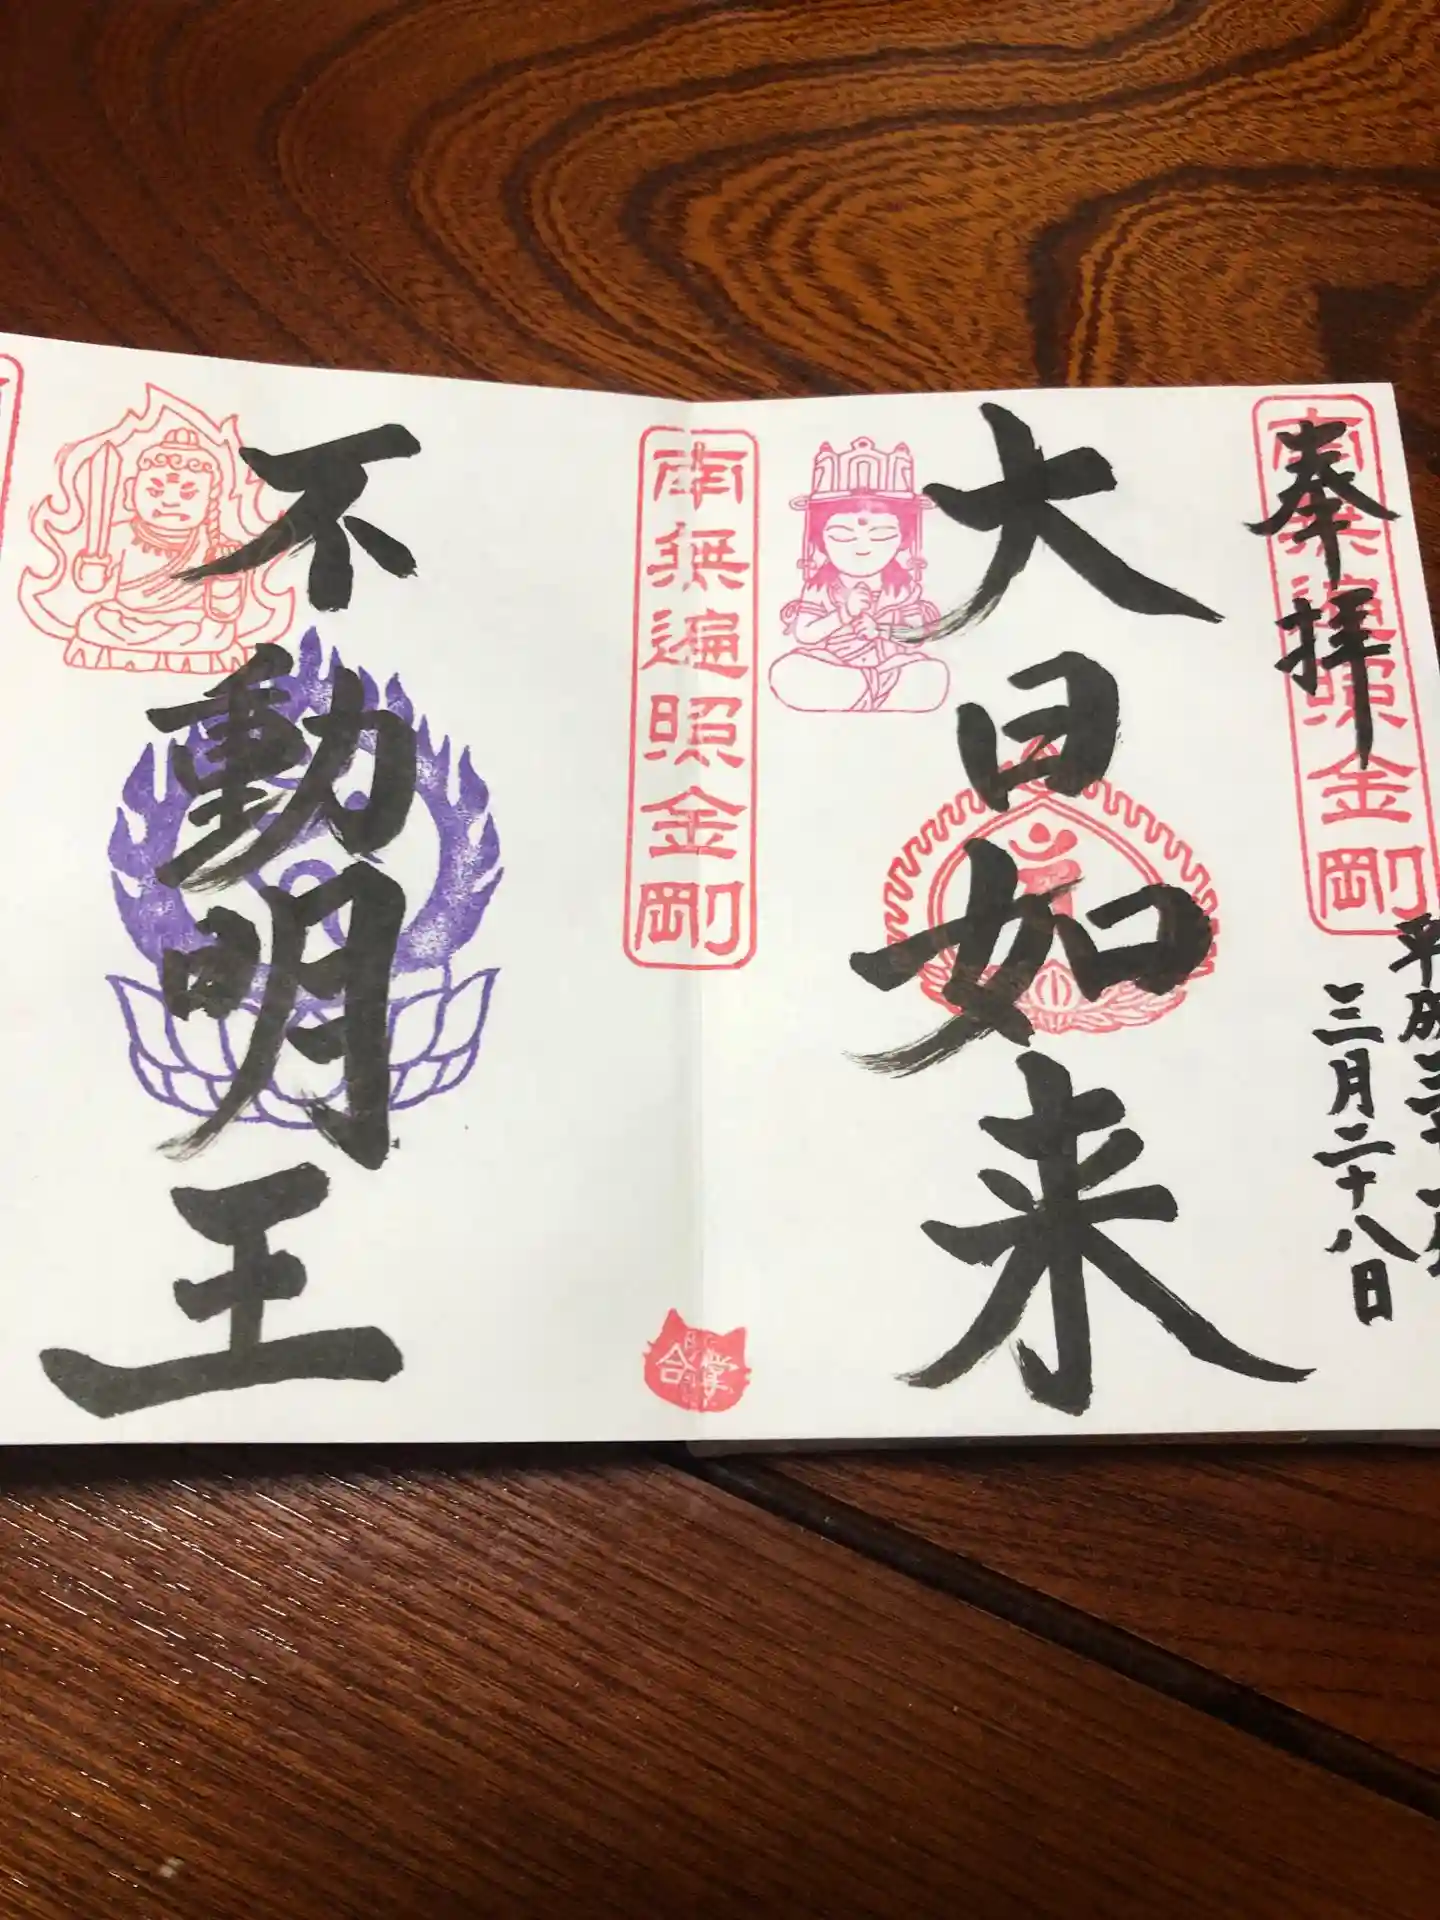 奉拝
南無遍照金剛
平成三十一年
三月二十八日
大日如来
南無遍照金剛
合掌
不動明王